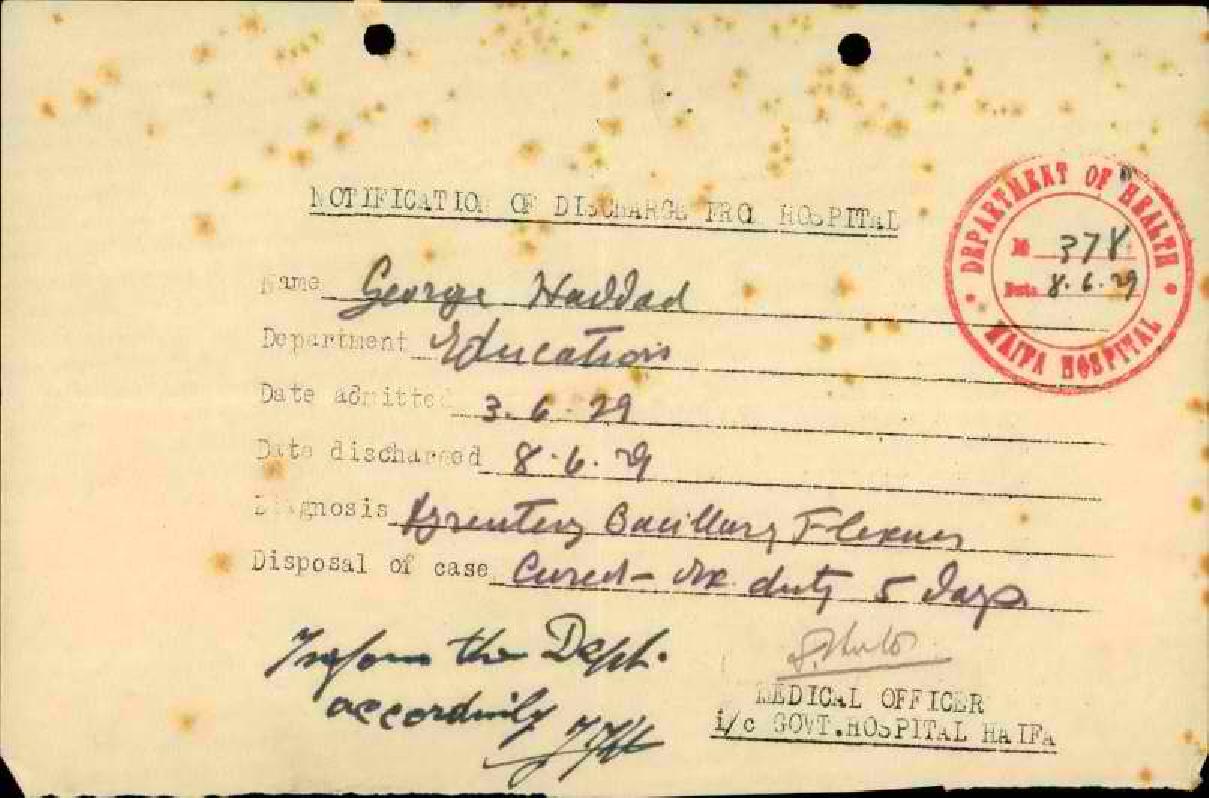 NOTIFICATION OF DISCHARGE FROM HOSPITAL
DEPARTMENT OF HEALTH
No 378
Date 8.6.29
HAIFA HOSPITAL
Name George Haddad
Department Education
Date admitted 3.6.29
Date discharged 8.6.29
Diagnosis Dysentery Bacillary Flexner
Disposal of case Cured - Ex. duty 5 days
Inform the Dept.
accordinily
MEDICAL OFFICER
i/c GOVT.HOSPITAL HAIFA